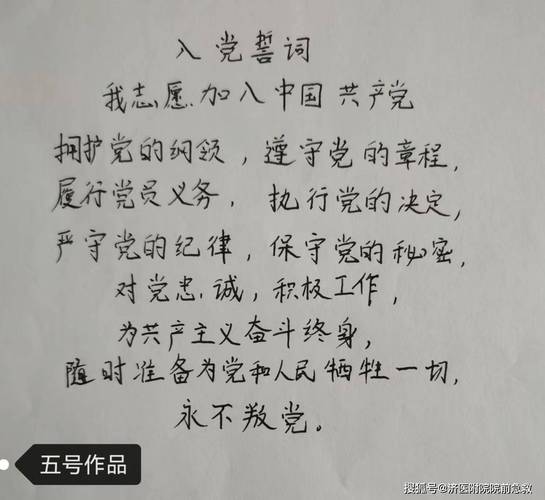 入党誓词
我志愿加入中国共产党
拥护党的纲领，遵守党的章程，
履行党员义务，执行党的决定，
严守党的纪律，保守党的秘密，
对党忠诚，积极工作，
为共产主义奋斗终身，
随时准备为党和人民牺牲一切，
永不叛党。
五号作品
搜狐号@济医附院院前急救